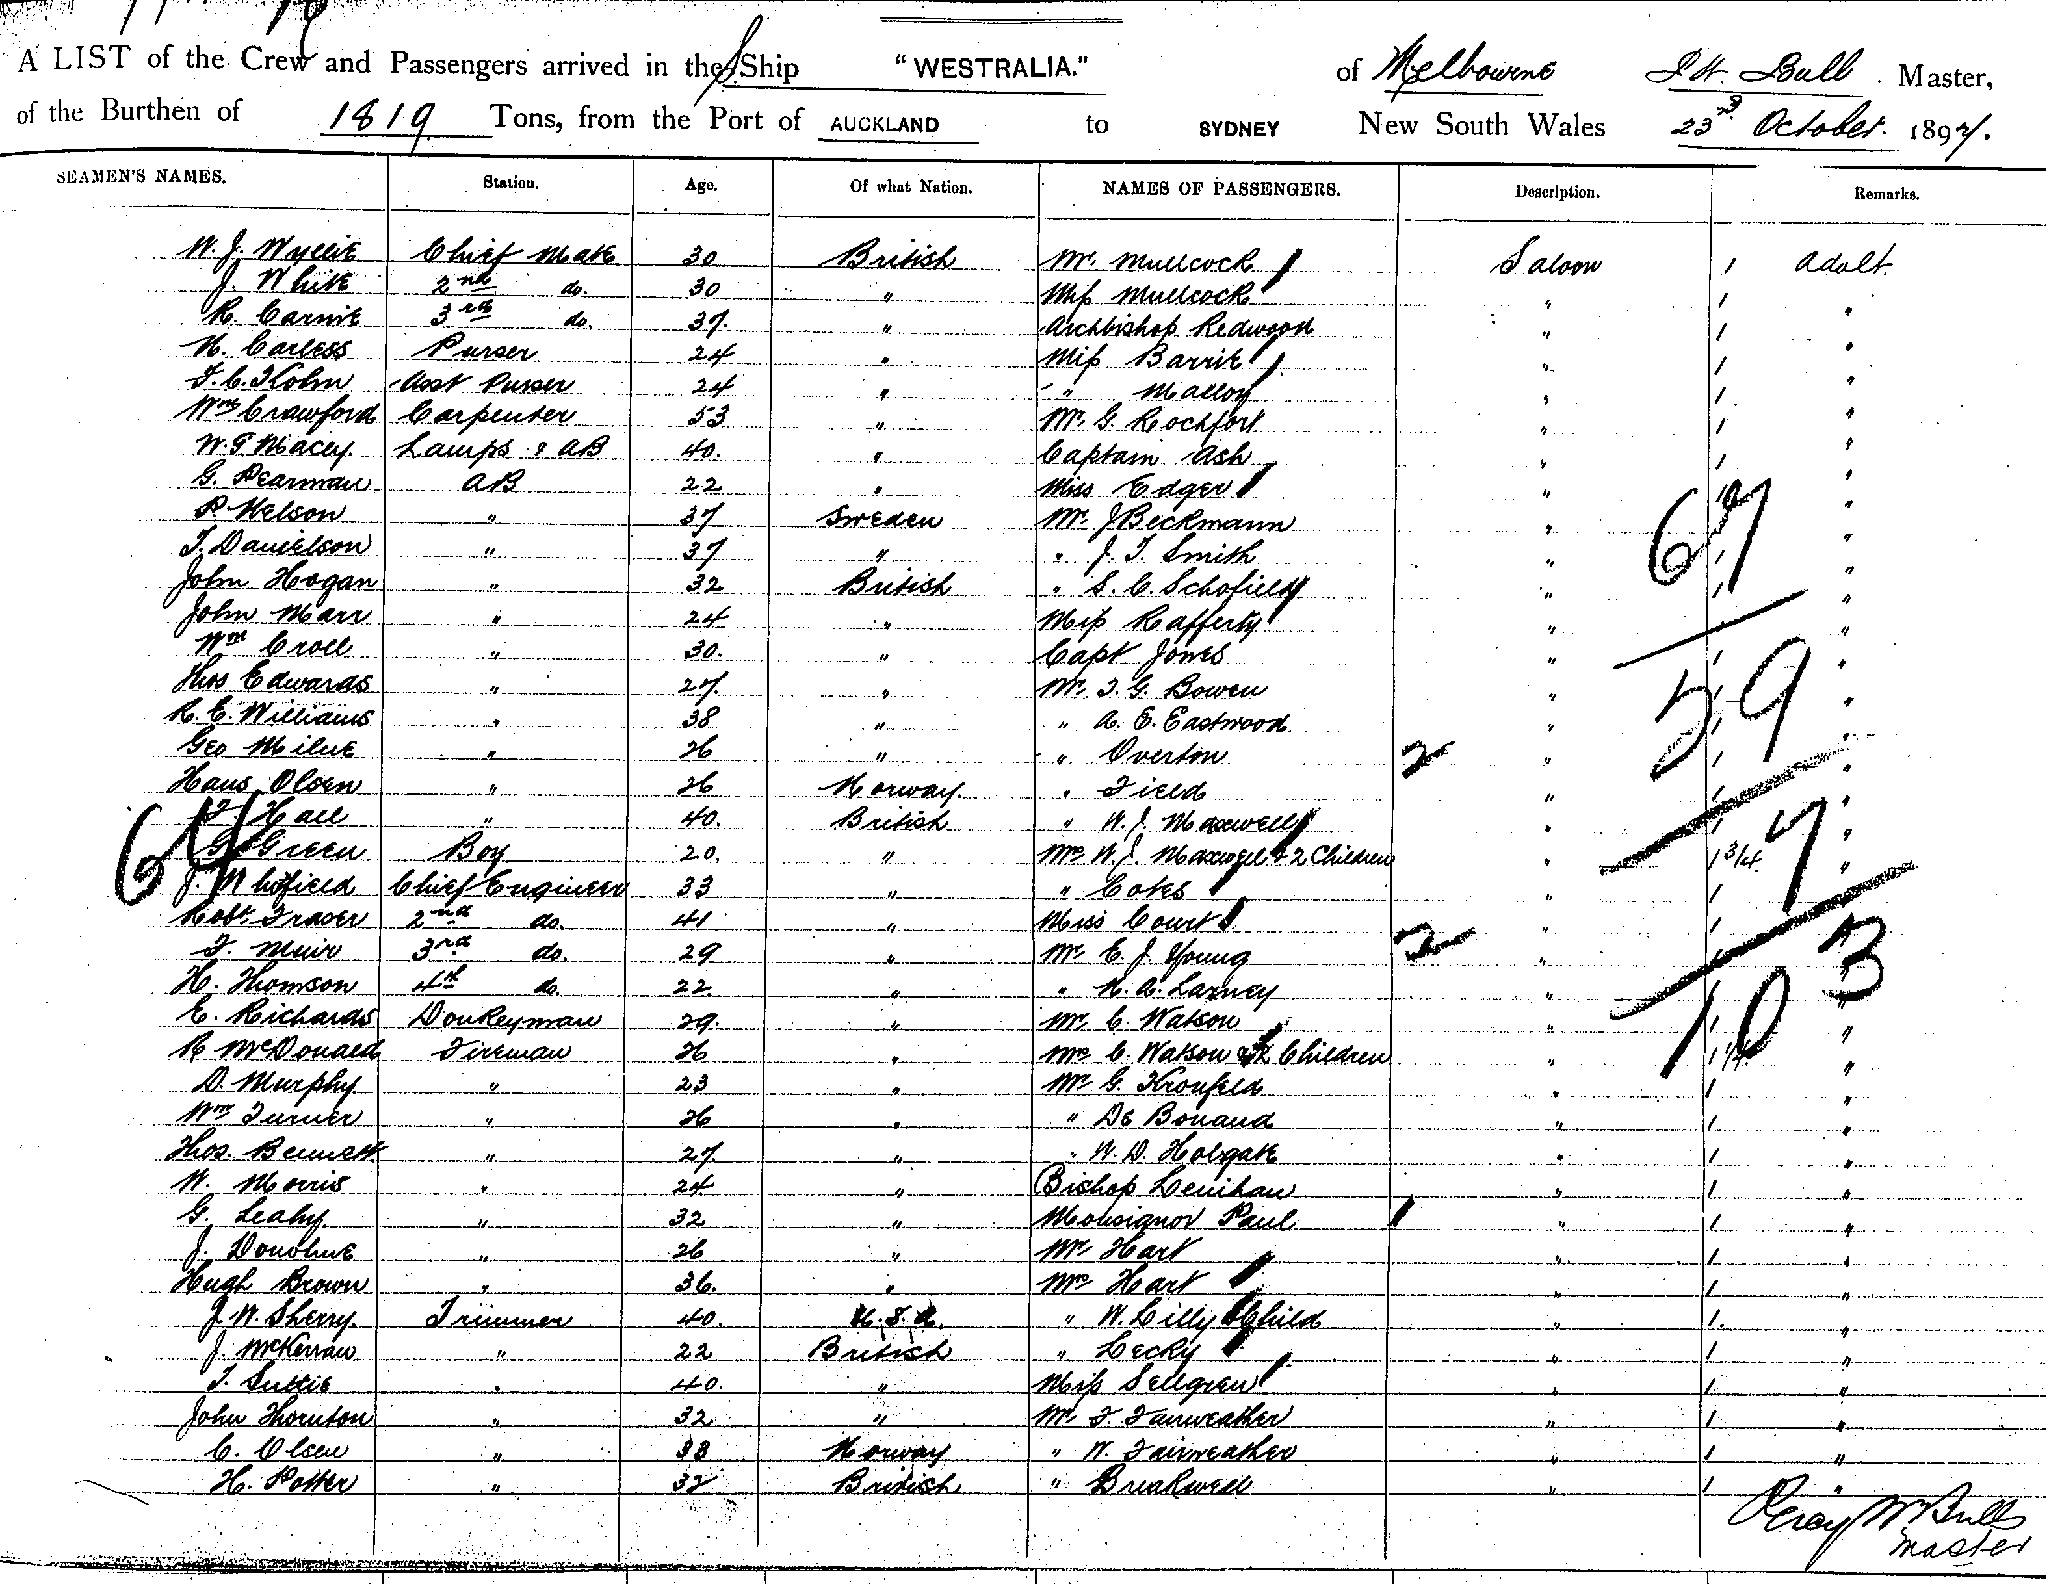 A LIST of the Crew and Passengers arrived in the Ship "WESTRALIA." of Melbourne P. W. Bull Master,
of the Burthen of 1819 Tons, from the Port of AUCKLAND to SYDNEY New South Wales 23rd October. 1897.
SEAMEN'S NAMES. Station. Age. Of what Nation. NAMES OF PASSENGERS. Description. Remarks.
W. J. Wyllie Chief Mate 30 British Mr. Mullcock Saloon 1 Adult
J. White 2nd do. 30 " Miss Mullcock " 1 "
R. Carnie 3rd do. 37. " Archbishop Redwood " 1 "
N. Carless Purser 24 " Miss Barrie " 1 "
Asst Purser 24 " " Malloy " 1 "
Wm Crawford Carpenter 53 " Mr. G. Rochfort " 1 "
W. G Macey Lamps & AB 40. " Captain Ash " 1 "
G. Pearman AB 22 " Miss Edger " 1 "
P. Nelson " 37 Sweden Mr. J Beckmann " 1 "
T. Danielson " 37 " " J. T. Smith " 1 "
John Hogan " 32 British " S. C. Schofield " 1 "
John Marr " 24 " Miss Rafferty " 1 "
Wm Croll " 30. " Capt Jones " 1 "
Thos Edwards " 27. " Mr. T. G. Bowen " 1 "
R. E. Williams " 38 " " A. E. Eastwood " 1 "
Geo Milne " 26 " " Overton 2 " 1 "
Hans Olsen " 26 Norway. " Field " 1 "
F. Hall " 40. British " W. J. Maxwell " 1 "
G. Green Boy 20. " Mrs W. J. Maxwell & 2 Children " 1 3/4 "
Chief Engineer 33 " " Cotes " 1 "
Robt. Fraser 2nd do. 41 " Miss Court " 1 "
F. Muir 3rd do. 29 " Mr. E. J. Young 2 " 1 "
H. Thomson 4th do. 22. " " N. A. Larney " 1 "
E. Richards Donkeyman 29. " Mr. C. Watson " 1 "
R McDonald Fireman 26 " Mrs C. Watson Children " 1 "
D. Murphy " 23 " Mr. G. Kronfeld " 1 "
Wm Turner " 26 " " De Bonand " 1 "
Thos. Bennett " 27. " " W. D. Holgate " 1 "
W. Morris " 24 " Bishop Lenihan " 1 "
G. Leahy. " 32 " Monsignor Paul " 1 "
J. Donohue " 26 " Mr. Hart " 1 "
Hugh Brown " 36. " Mrs Hart " 1 "
J. W. Sherry. Trimmer 40. U.S.A. " W. Lilly & Child " 1 "
J. McKerrow " 22 British " Lecky " 1 "
T. Suttie " 40. " Miss Sellgren " 1 "
John Thornton " 32 " Mr. F. Fairweather " 1 "
C. Olsen " 33 Norway " W. Fairweather " 1 "
H. Potter " 32 British " Breakwell " 1 "
64
67
29
7
103
Percy W Bull
Master